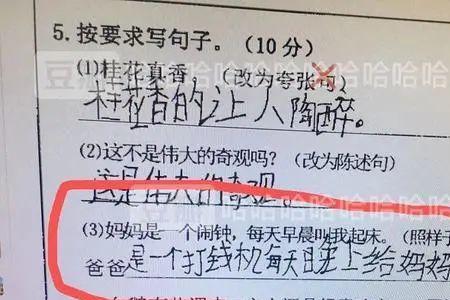 5.按要求写句子。(10分)
(1)桂花真香。(改为夸张句)
桂花香的让人陶醉。
(2)这不是伟大的奇观吗?(改为陈述句)
这是伟大的奇观。
(3)妈妈是一个闹钟,每天早晨叫我起床。(照样子
爸爸是一个打钱机每天晚上给妈妈